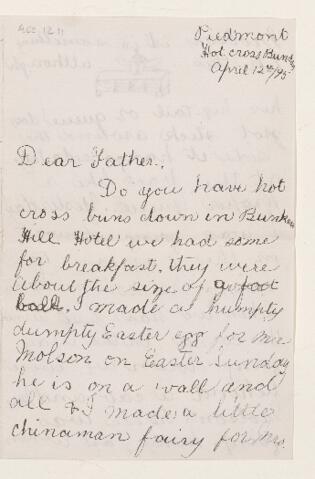 Piedmont
Hot cross Bunday
April 12th/95
Dear Father.,
Do you have hot
cross buns down in Bunker
Hill Hotel we had some
for breakfast, they were
about the size of a foot
ball. I made a humpty
dumpty Easter egg for Mr.
Molson on Easter Sunday
he is on a wall and
all & I made a little
chinaman fairy for Mrs.